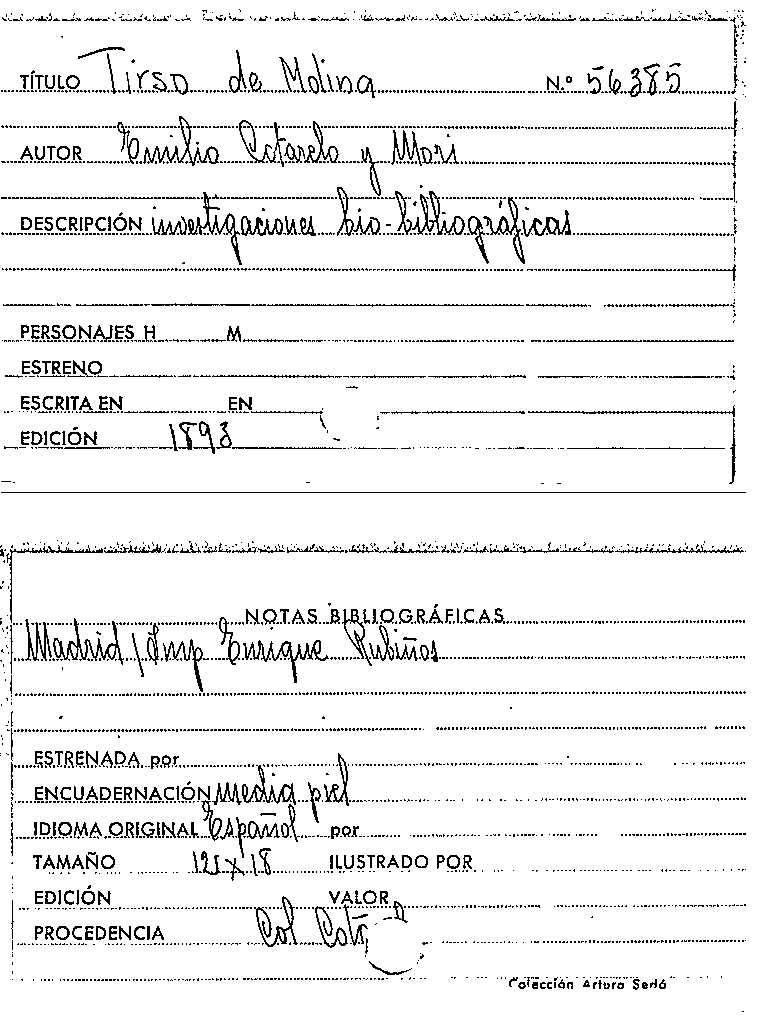 TÍTULO Tirso de Molina N.º 56385
AUTOR Emilio Cotarelo y Mori
DESCRIPCIÓN investigaciones bio-bibliográficas
PERSONAJES H M
ESTRENO
ESCRITA EN EN
EDICIÓN 1893
NOTAS BIBLIOGRÁFICAS
Madrid / Imp Enrique Rubiños
ESTRENADA por
ENCUADERNACIÓN media piel
IDIOMA ORIGINAL Español por
TAMAÑO ILUSTRADO POR
EDICIÓN VALOR
PROCEDENCIA Col
Colección Arturo Sedó